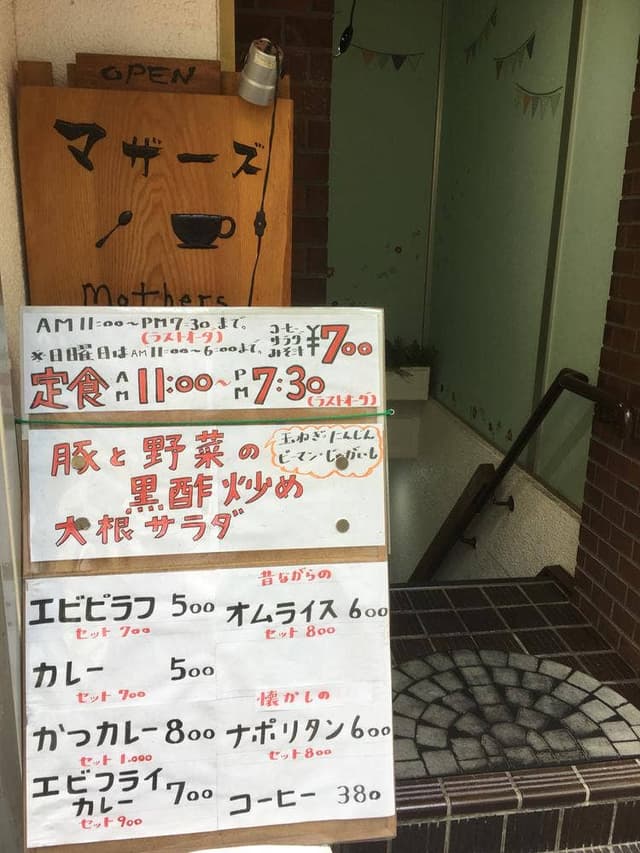 OPEN
マザーズ
Mothers
AM 11:00~PM 7:30 まで。
(ラストオーダ)
※日曜日は AM 11:00~6:00まで。
コーヒー
サラダ
みそ汁
¥700
定食 AM 11:00~PM 7:30
(ラストオーダ)
豚と野菜の
玉ねぎ・にんじん
ピーマン・じゃがいも
黒酢炒め
大根サラダ
エビピラフ 500
セット 700
カレー 500
セット 700
かつカレー 800
セット 1.000
エビフライ
カレー 700
セット 900
昔ながらの
オムライス 600
セット 800
懐かしの
ナポリタン 600
セット 800
コーヒー 380